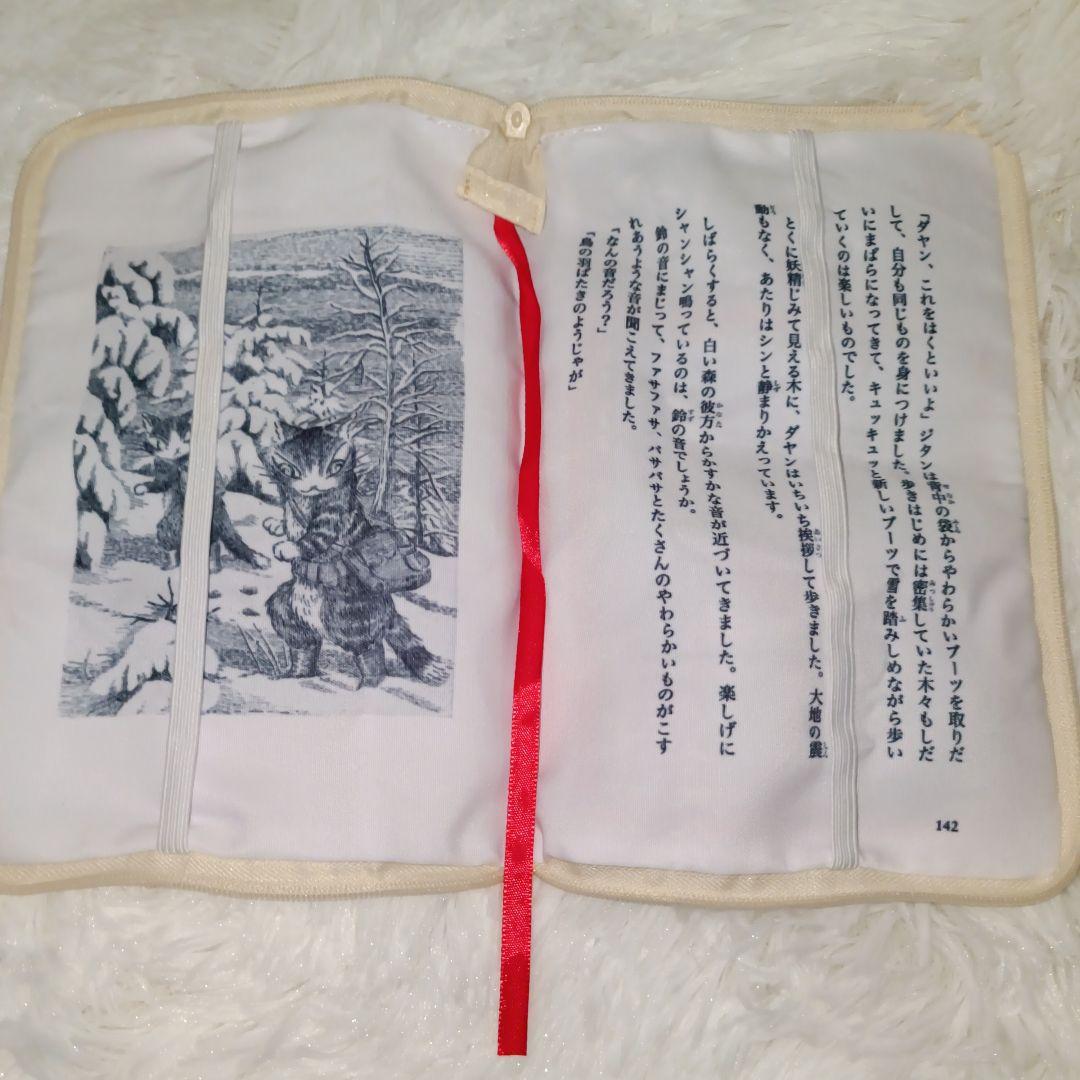 「ダヤン、これをはくといいよ」ジタンは背中の袋からやわらかいブーツを取りだ
して、自分も同じものを身につけました。歩きはじめには密集していた木々もしだ
いにまばらになってきて、キュッキュッと新しいブーツで雪を踏みしめながら歩い
ていくのは楽しいものでした。
とくに妖精じみて見える木に、ダヤンはいちいち挨拶して歩きました。大地の震
動もなく、あたりはシンと静まりかえっています。
しばらくすると、白い森の彼方からかすかな音が近づいてきました。楽しげに
シャンシャン鳴っているのは、鈴の音でしょうか。
鈴の音にまじって、ファサファサ、パサパサとたくさんのやわらかいものがこす
れあうような音が聞こえてきました。
「なんの音だろう？」
「鳥の羽ばたきのようじゃが」
142